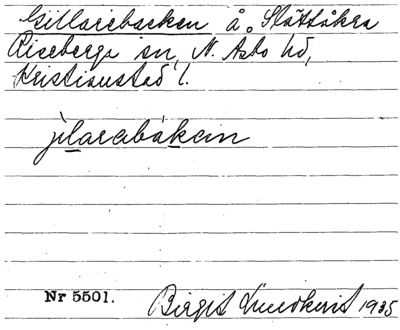 Gillarebacken å. Slättåkra
Riseberga sn, N. Åsbo hd,
Kristianstad l.
jìlarabákan
Nr 5501. Birgit Lundkvist 1935